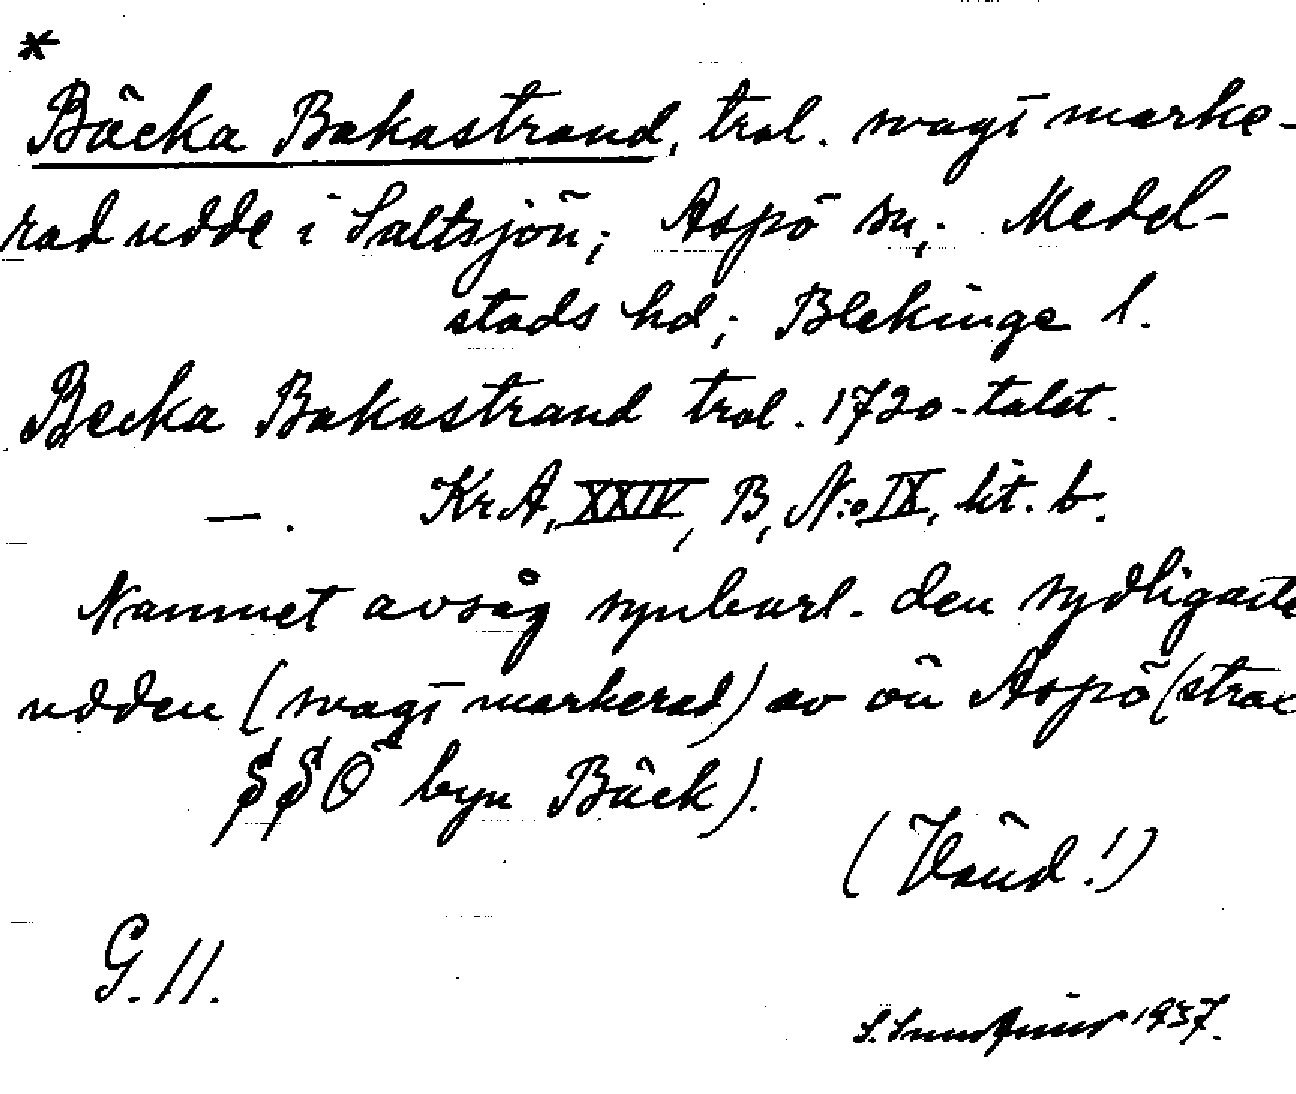 *
Bäcka Bakastrand, trol. svagt marke-
rad udde i Saltsjön; Aspö sn; Medel-
stads hd; Blekinge l.
Becka Bakastrand trol. 1720-talet.
— . KrA, XXIV, B, N:o IX, lit. b.
Namnet avsåg synbarl. den sydligaste
udden (svagt markerad) av ön Aspö (strax
SSO byn Bäck).
(Vänd!)
G. 11.
S. 1937.